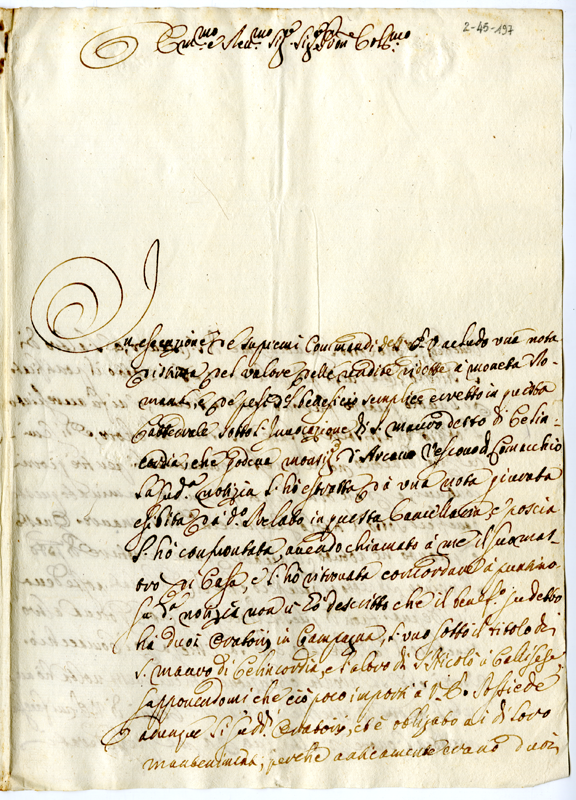 2-45-197
Em.mo e Rev.mo Sig.re Sig.re Pron Col.mo
In esecuzione de supremi Commandi dell' E. V. acludo una nota
distinta del valore delle rendite ridotte a moneta Ro-
mana, e de pesi d. beneficio semplice eretto in questa
Cattedrale sotto l'Invocazione di S. Mauro detto di Celin-
cordia, che godeua Monsig. d'Arcano Vescouo di Comacchio
La sud.a notizia l'hò estratta da una nota giurata
esibita da d.o Prelado in questa Cancellaria, e poscia
l'hò confrontata, auendo chiamato à me il suo mas-
tro di Casa, e l'hò ritrouata concordare à puntino
In d.a notizia non ui hò descritto che il benef.o sudetto
ha duoi Oratorij in Campagna, l'uno sotto il titolo di
S. Mauro di Celincordia, e l'altro di S. Nicolò à Callisese
supponendomi che ciò poco importi à V. E. Possiede
dunque li sudd. Oratorij, et è obligato ai di loro
mantenimenti, perche anticamente erano duoi